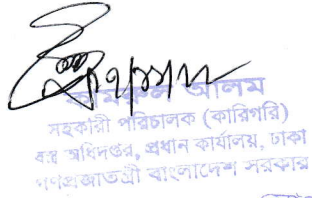 আলম
সহকারী পরিচালক (কারিগরি)
বস্ত্র অধিদপ্তর, প্রধান কার্যালয়, ঢাকা
গণপ্রজাতন্ত্রী বাংলাদেশ সরকার